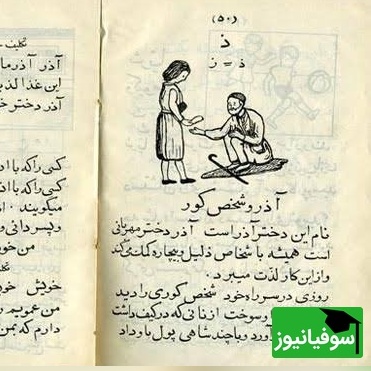 (۵۰)
ذ
ذ ـ ـذ
آذر و شخص کور
نام این دختر آذر است آذر دختر مهربانی
است همیشه با شخاص ذلیل و بیچاره کمک میکند
و از این کار لذت میبرد.
روزی در سر راه خود شخص کوری را دید
و سوخت از نانی که در کیف داشت
آورد و با چند شاهی پول با و داد
آذر آذر ما
این غذا لذ
آذر دختر خ
کسی را که با اد
کسی را که با اد
میگویند.
و پسر دانی و
من خو
خویش خود
من عمویم ر
دارم که بمن
سوفیانیوز